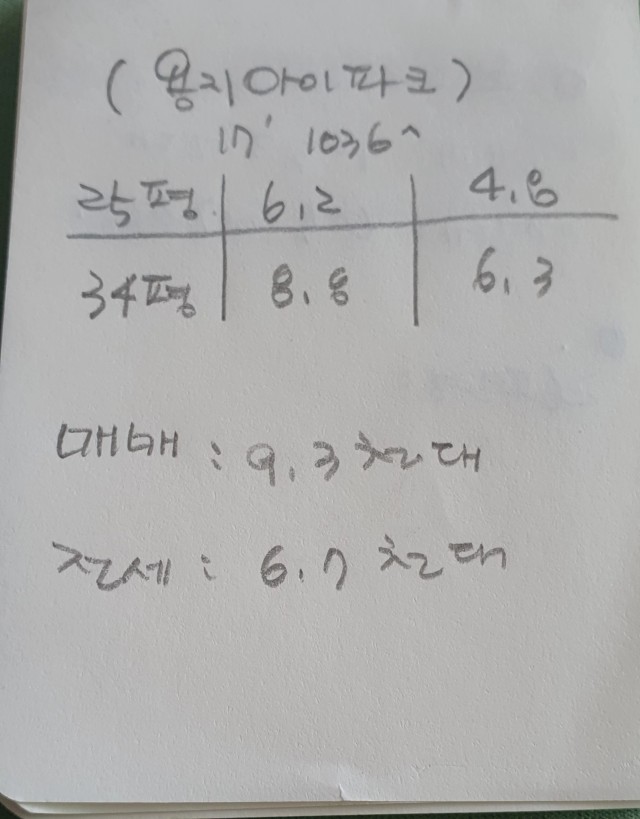 (용지아이파크)
17' 1036^
25평 6.2 4.8
34평 8.8 6.3
매매 : 9.3천대
전세 : 6.7천대